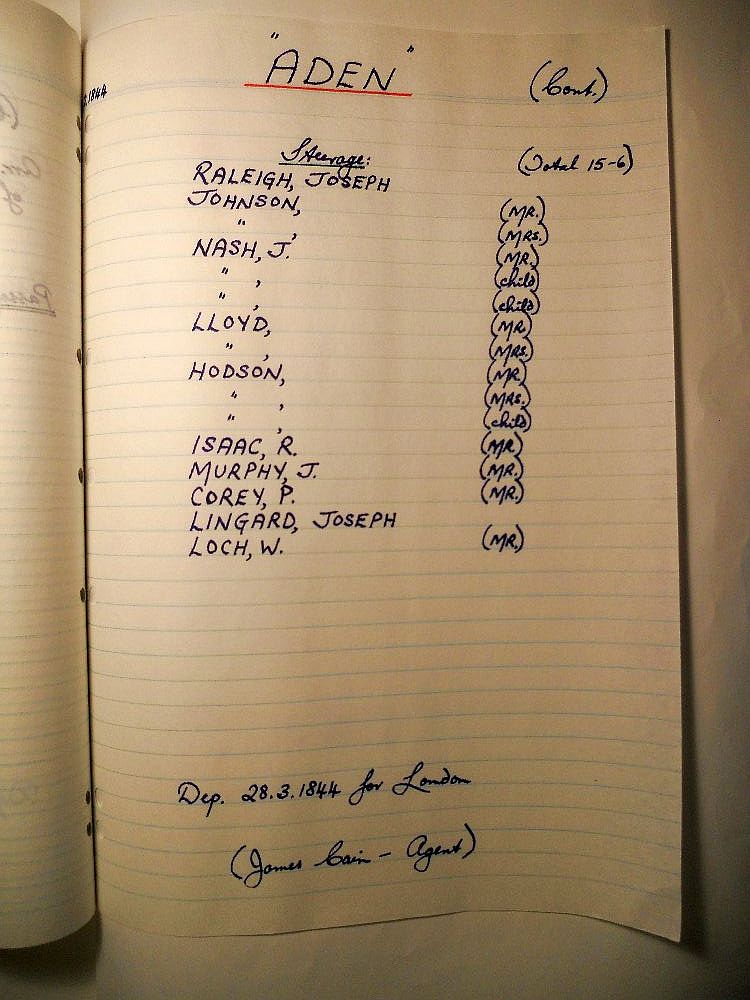 "ADEN" (Cont.)
.1844
Steerage: (Total 15-6)
RALEIGH, JOSEPH
JOHNSON, (MR.)
" , (MRS.)
NASH, J. (MR.)
" , (child)
" , (child)
LLOYD, (MR.)
" , (MRS.)
HODSON, (MR.
" , (MRS.
" , (child)
ISAAC, R. (MR)
MURPHY, J. (MR.)
COREY, P. (MR.)
LINGARD, JOSEPH
LOCH, W. (MR.)
Dep. 28.3.1844 for London
(James Cain - Agent)